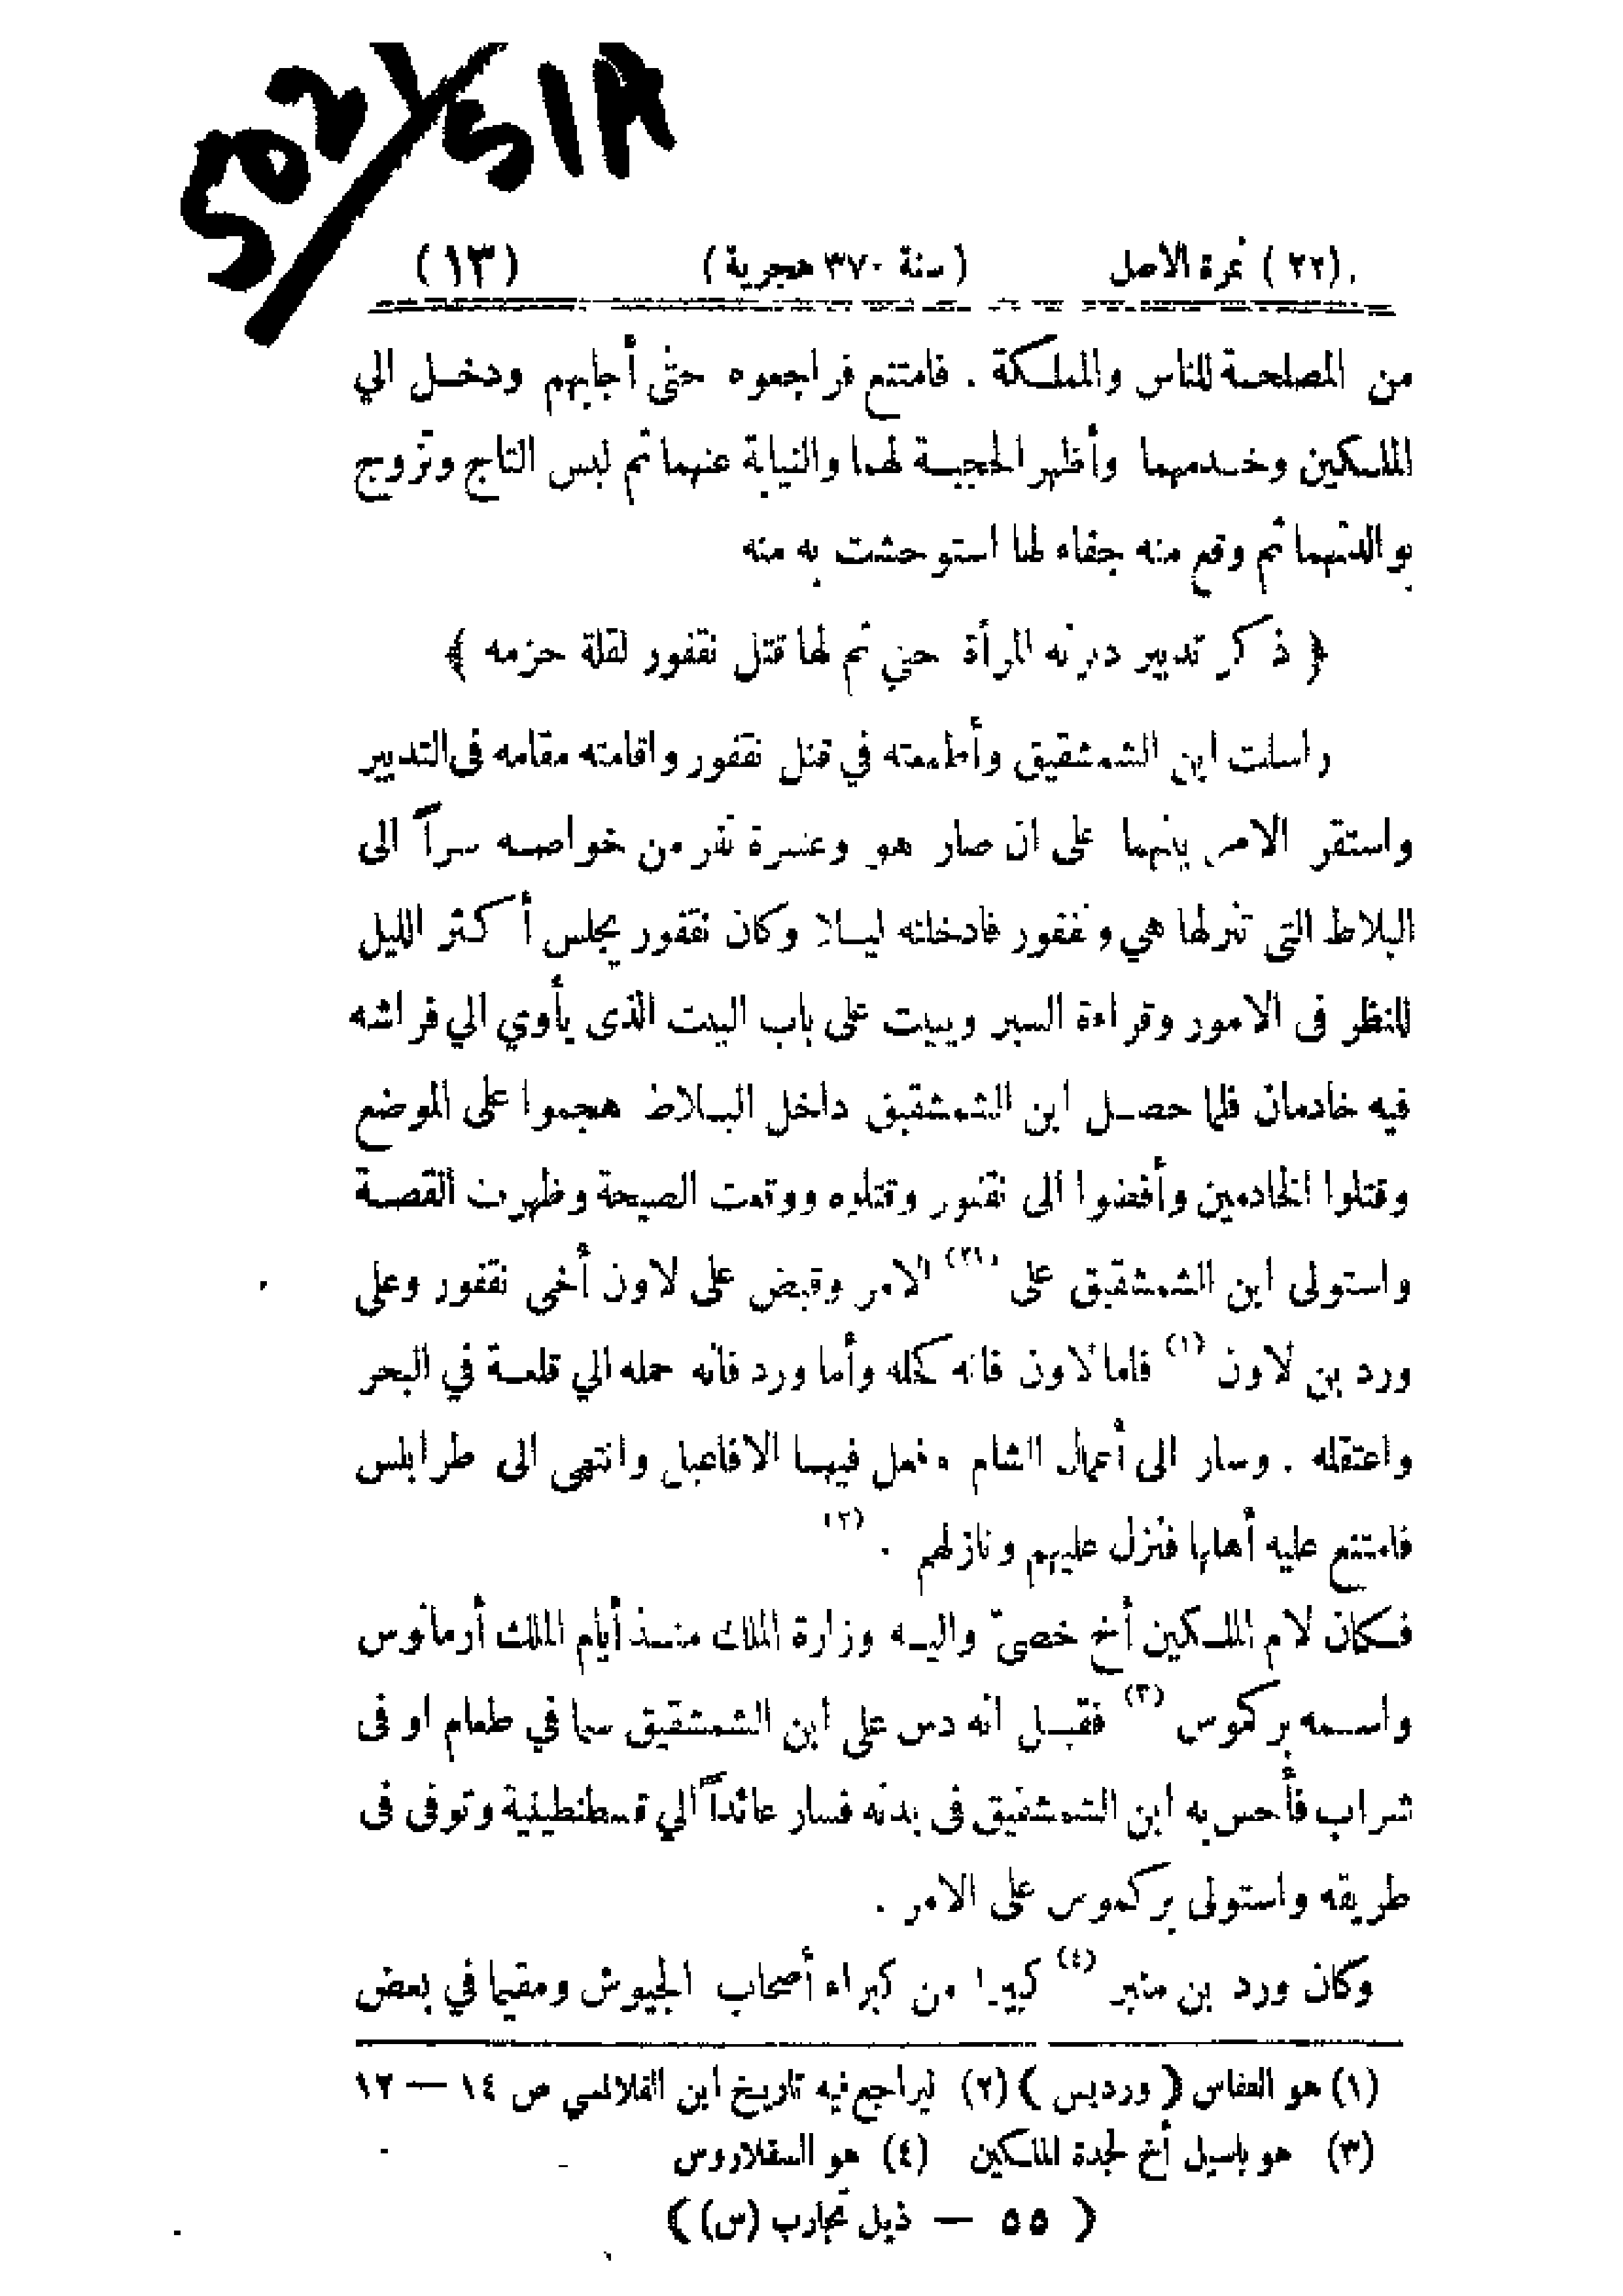 502/51A
(٢٢) نمرة الاصل (سنة ٣٧٠ هجرية) (١٣)
من المصلحة للناس والمملكة . فامتنع فراجعوه حتى أجابهم ودخل الي
الملكين وخدمهما وأظهر الحجبة لهما والنيابة عنهما ثم لبس التاج وتزوج
بوالدتهما ثم وقع منه جفاء لها استوحشت به منه
﴿ ذكر تدبير دبرته المرأة حتى تم لها قتل نقفور لقلة حزمه ﴾
راسلت ابن الشمشقيق وأطمعته في قتل نقفور واقامته مقامه فى التدبير
واستقر الامر بينهما على ان صار هو وعشرة نفر من خواصه سراً الى
البلاط التى تنزلها هي ونقفور فادخلته ليلا وكان نقفور يجلس أكثر الليل
للنظر فى الامور وقراءة السير ويبيت على باب البيت الذى يأوي الي فراشه
فيه خادمان فلما حصل ابن الشمشقيق داخل البلاط هجموا على الموضع
وقتلوا الخادمين وأفضوا الى نقفور وقتلوه ووقعت الصيحة وظهرت القصة
واستولى ابن الشمشقيق على الامر وقبض على لاون أخى نقفور وعلى
ورد بن لاون (١) فاما لاون فانه كحله وأما ورد فانه حمله الي قلعة في البحر
واعتقله . وسار الى أعمال الشام وفعل فيها الافاعيل وانتهى الى طرابلس
فامتنع عليه أهلها فنزل عليهم ونازلهم . (٢)
فكان لام الملكين أخ خصىّ واليه وزارة الملك منذ أيام الملك أرمانوس
واسمه بركموس (٣) فقيل انه دس على ابن الشمشقيق سما في طعام او فى
شراب فأحس به ابن الشمشقيق فى بدنه فسار عائداً الي قسطنطينية وتوفى فى
طريقه واستولى بركموس على الامر .
وكان ورد بن منير (٤) كبيرا من كبراء أصحاب الجيوش ومقيما في بعض
(١) هو الفقاس ( ورديس ) (٢) ليراجع فيه تاريخ ابن القلانسي ص ١٤ — ١٢
(٣) هو باسيل أخ لجدة الملكين (٤) هو السقلاروس
( ٥٥ — ذيل تجارب (س) )